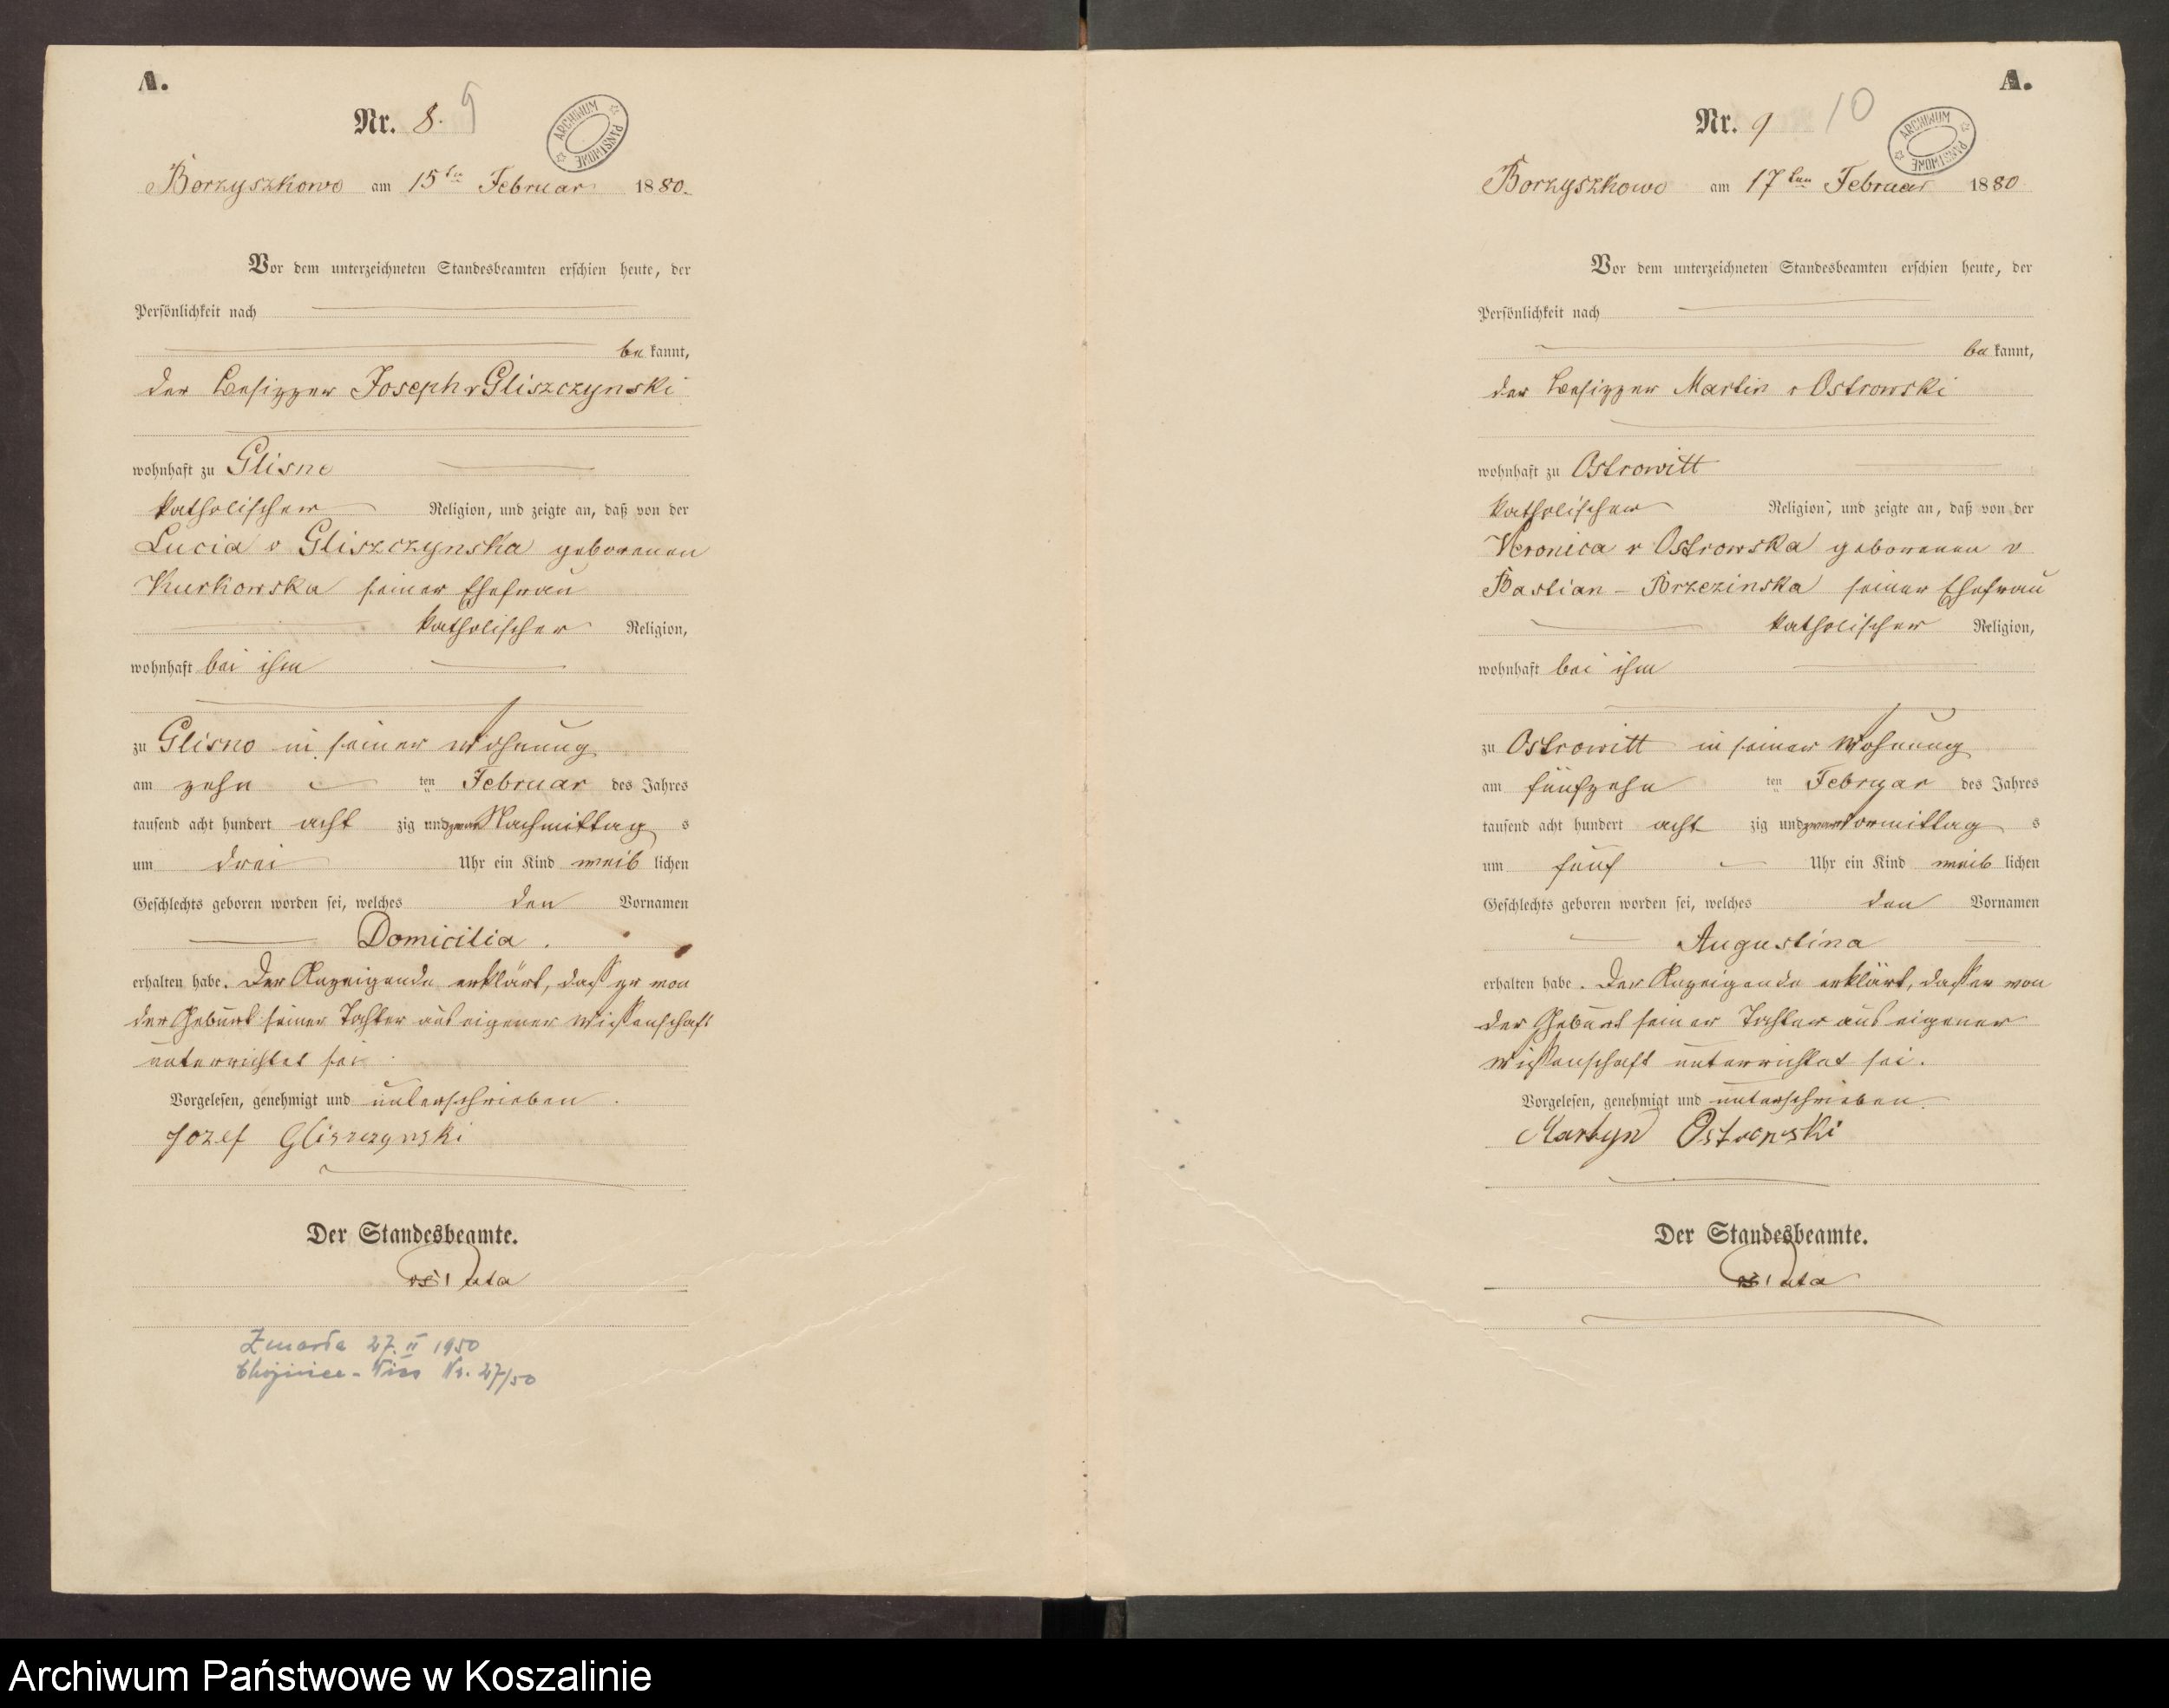 A.
Nr. 8. 9
ARCHIWUM PAŃSTWOWE
Borzyszkowo am 15ten Februar 1880.
Vor dem unterzeichneten Standesbeamten erschien heute, der
Persönlichkeit nach
be kannt,
der Besitzer Joseph v Gliszczynski
wohnhaft zu Glisne
katholischer Religion, und zeigte an, daß von der
Lucia v Gliszczynska geborenen
Kurkowska seiner Ehefrau
katholischer Religion,
wohnhaft bei ihm
zu Glisno in seiner Wohnung
am zehn ten Februar des Jahres
tausend acht hundert acht zig und zwar Nachmittag s
um drei Uhr ein Kind weib lichen
Geschlechts geboren worden sei, welches den Vornamen
Domicilia.
erhalten habe. Der Anzeigende erklärt, daß er von
der Geburt seiner Tochter aus eigener Wissenschaft
unterrichtet sei.
Vorgelesen, genehmigt und unterschrieben.
Jozef Gliszczynski
Der Standesbeamte.
Zmarła 27. II 1950
Chojnice - Nr. 27/50
A.
Nr. 9 10
ARCHIWUM PAŃSTWOWE
Borzyszkowo am 17ten Februar 1880
Vor dem unterzeichneten Standesbeamten erschien heute, der
Persönlichkeit nach
be kannt,
der Besitzer Martin v Ostrowski
wohnhaft zu Ostrowitt
katholischer Religion, und zeigte an, daß von der
Veronica v Ostrowska geborenen v
Bastian - Brzezinska seiner Ehefrau
katholischer Religion,
wohnhaft bei ihm
zu Ostrowitt in seiner Wohnung
am fünfzehn ten Februar des Jahres
tausend acht hundert acht zig und zwar Vormittag s
um fünf Uhr ein Kind weib lichen
Geschlechts geboren worden sei, welches den Vornamen
Augustina
erhalten habe. Der Anzeigende erklärt, daß er von
der Geburt seiner Tochter aus eigener
Wissenschaft unterrichtet sei.
Vorgelesen, genehmigt und unterschrieben.
Martyn Ostrowski
Der Standesbeamte.
Archiwum Państwowe w Koszalinie